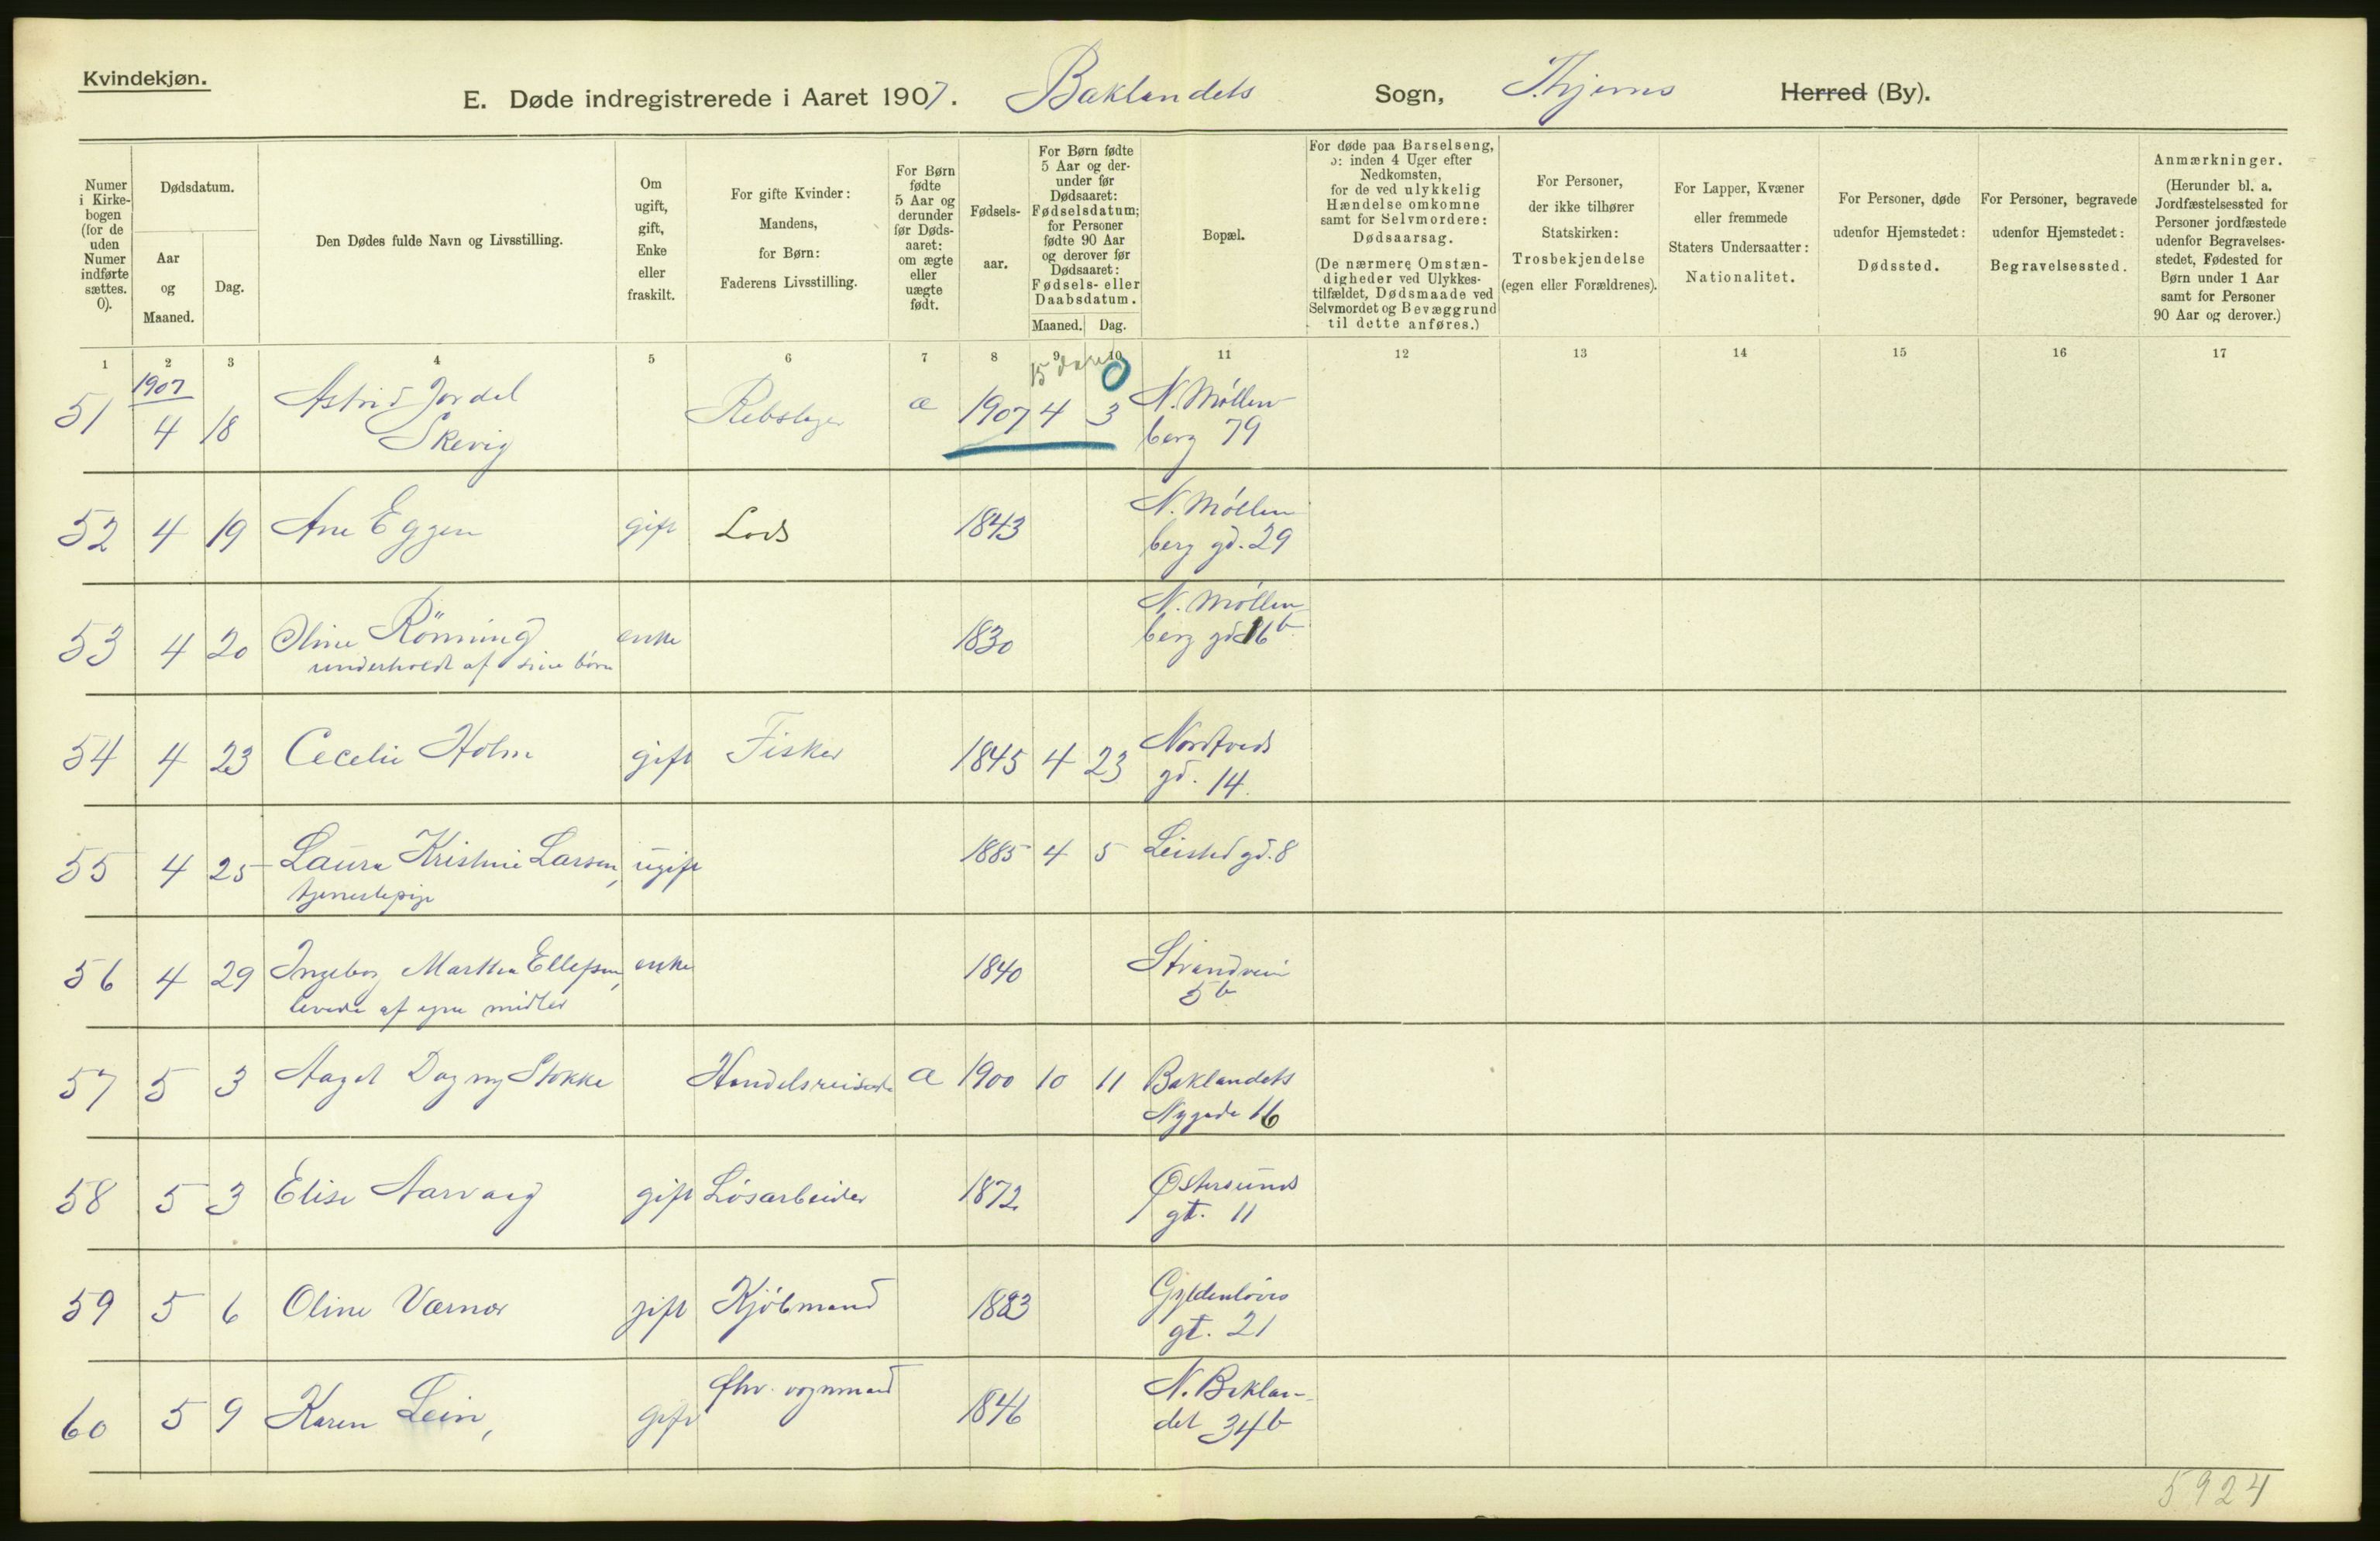 Kvindekjøn.
E. Døde indregistrerede i Aaret 1907. Baklandets Sogn, Thjems Herred (By).
Numer i Kirke-bogen (for de uden Numer indførte sættes. 0).
Dødsdatum.
Aar og Maaned.
Dag.
Den Dødes fulde Navn og Livsstilling.
Om ugift, gift, Enke eller fraskilt.
For gifte Kvinder: Mandens, for Børn: Faderens Livsstilling.
For Børn fødte 5 Aar og derunder før Døds-aaret: om ægte eller uægte født.
Fødsels-aar.
For Børn fødte 5 Aar og der-under før Dødsaaret: Fødselsdatum; for Personer fødte 90 Aar og derover før Dødsaaret: Fødsels- eller Daabsdatum.
Maaned. Dag.
Bopæl.
For døde paa Barselseng, ɔ: inden 4 Uger efter Nedkomsten, for de ved ulykkelig Hændelse omkomne samt for Selvmordere: Dødsaarsag.
(De nærmere Omstæn-digheder ved Ulykkes-tilfældet, Dødsmaade ved Selvmordet og Bevæggrund til dette anføres.)
For Personer, der ikke tilhører Statskirken: Trosbekjendelse (egen eller Forældrenes).
For Lapper, Kvæner eller fremmede Staters Undersaatter: Nationalitet.
For Personer, døde udenfor Hjemstedet: Dødssted.
For Personer, begravede udenfor Hjemstedet: Begravelsessted.
Anmærkninger.
(Herunder bl. a. Jordfæstelsessted for Personer jordfæstede udenfor Begravelses-stedet, Fødested for Børn under 1 Aar samt for Personer 90 Aar og derover.)
1 2 3 4 5 6 7 8 9 10 11 12 13 14 15 16 17
15 dage 0
1907
51 4 18 Astrid Jordel Rebslager æ 1907 4 3 N. Møllen-
Skevig berg 79
52 4 19 Ane Eggen gift Lods 1843 N. Møllen
berg gd. 29
53 4 20 Oline Rönning enke 1830 N. Møllen-
underholdt af sine børn berg gd 16b
54 4 23 Cecelie Holm gift Fisker 1845 4 23 Nordtveds
gd. 14.
55 4 25 Laura Kristine Larsen, ugift 1885 4 5 Leisted gd. 8
tjenestepige
56 4 29 Ingebor Martha Ellefsen, enke 1840 Strandvein
levede af egne midler 5b
57 5 3 Aagot Dagny Stokke Handelsreisende æ 1900 10 11 Baklandets
Nygade 16
58 5 3 Elise Aarvaag gift Løsarbeider 1872 Østersunds
gt. 11
59 5 6 Oline Værnor gift Kjøbmand 1883 Gyldenløves
gt. 21
60 5 9 Karen Lein, gift fhv. vognmand 1846 N. Baklan-
det 34b
5924